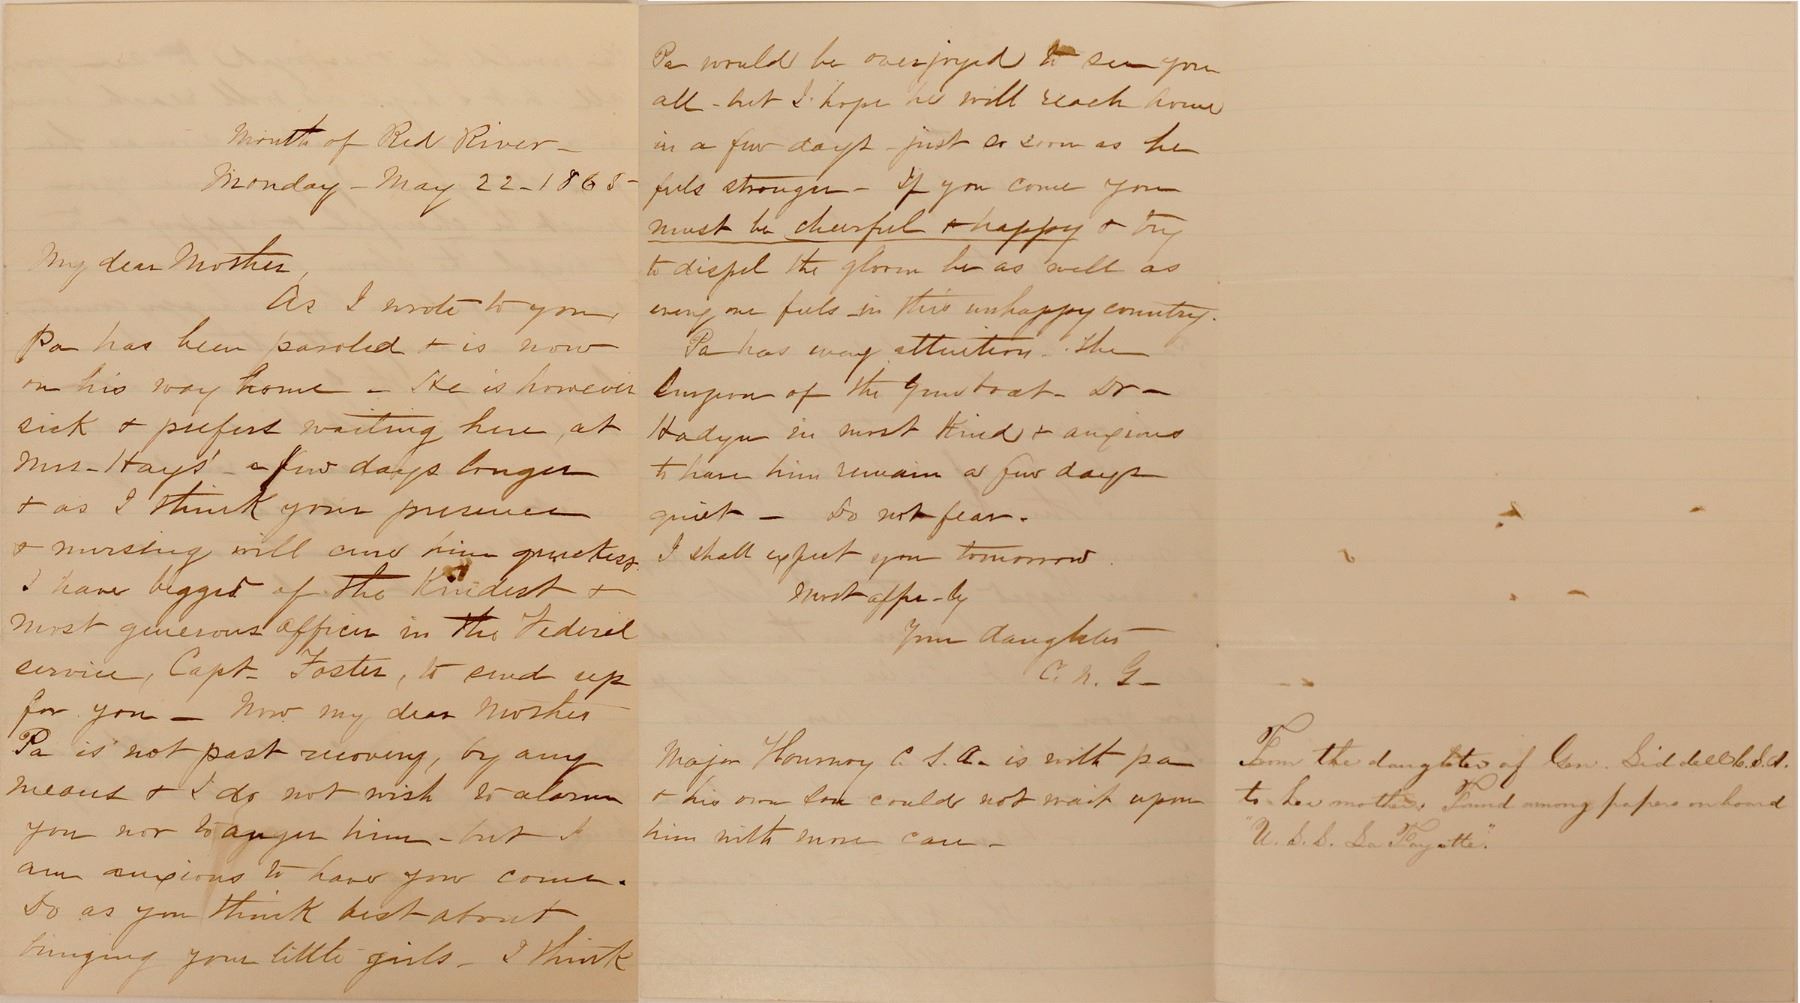 Mouth of Red River -
Monday - May 22 - 1865 -
My dear Mother,
As I wrote to you,
Pa has been paroled & is now
on his way home - He is however
sick & prefers waiting here, at
Mrs - Hays' - a few days longer
& as I think your presence
& nursing will cure him quickest
I have begged of the Kindest &
most generous officer in the Federal
service, Capt - Foster, to send up
for you - Now my dear Mother
Pa is not past recovery, by any
means & I do not wish to alarm
you nor to anger him - but I
am anxious to have you come.
Do as you think best about
bringing your little girls - I think
Pa would be overjoyed to see you
all - but I hope he will reach home
in a few days - just so soon as he
feels stronger - If you come you
must be cheerful & happy & try
to dispel the gloom he as well as
every one feels in this unhappy country.
Pa has every attention. The
Surgeon of the gunboat - Dr -
is most Kind & anxious
to have him remain a few days
quiet - Do not fear.
I shall expect you tomorrow.
Most affec-ly
Your daughter
C. N. G -
Major Flournoy C. S. A. is with pa
& his own son could not wait upon
him with more care -
From the daughter of Gen. Liddell C.S.A.
to her mother. Found among papers on board
"U. S. S. La Fayette."